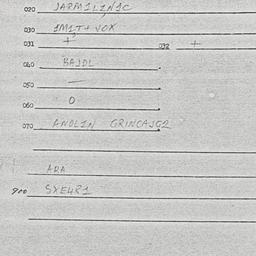 020 JARMILIN1C
030 1M1T+ VOX
031 + 032 +
040 BAJDL
050 —
060 O
070 ANDLIN GRINCAJG2
ARA
900 SXEUR1